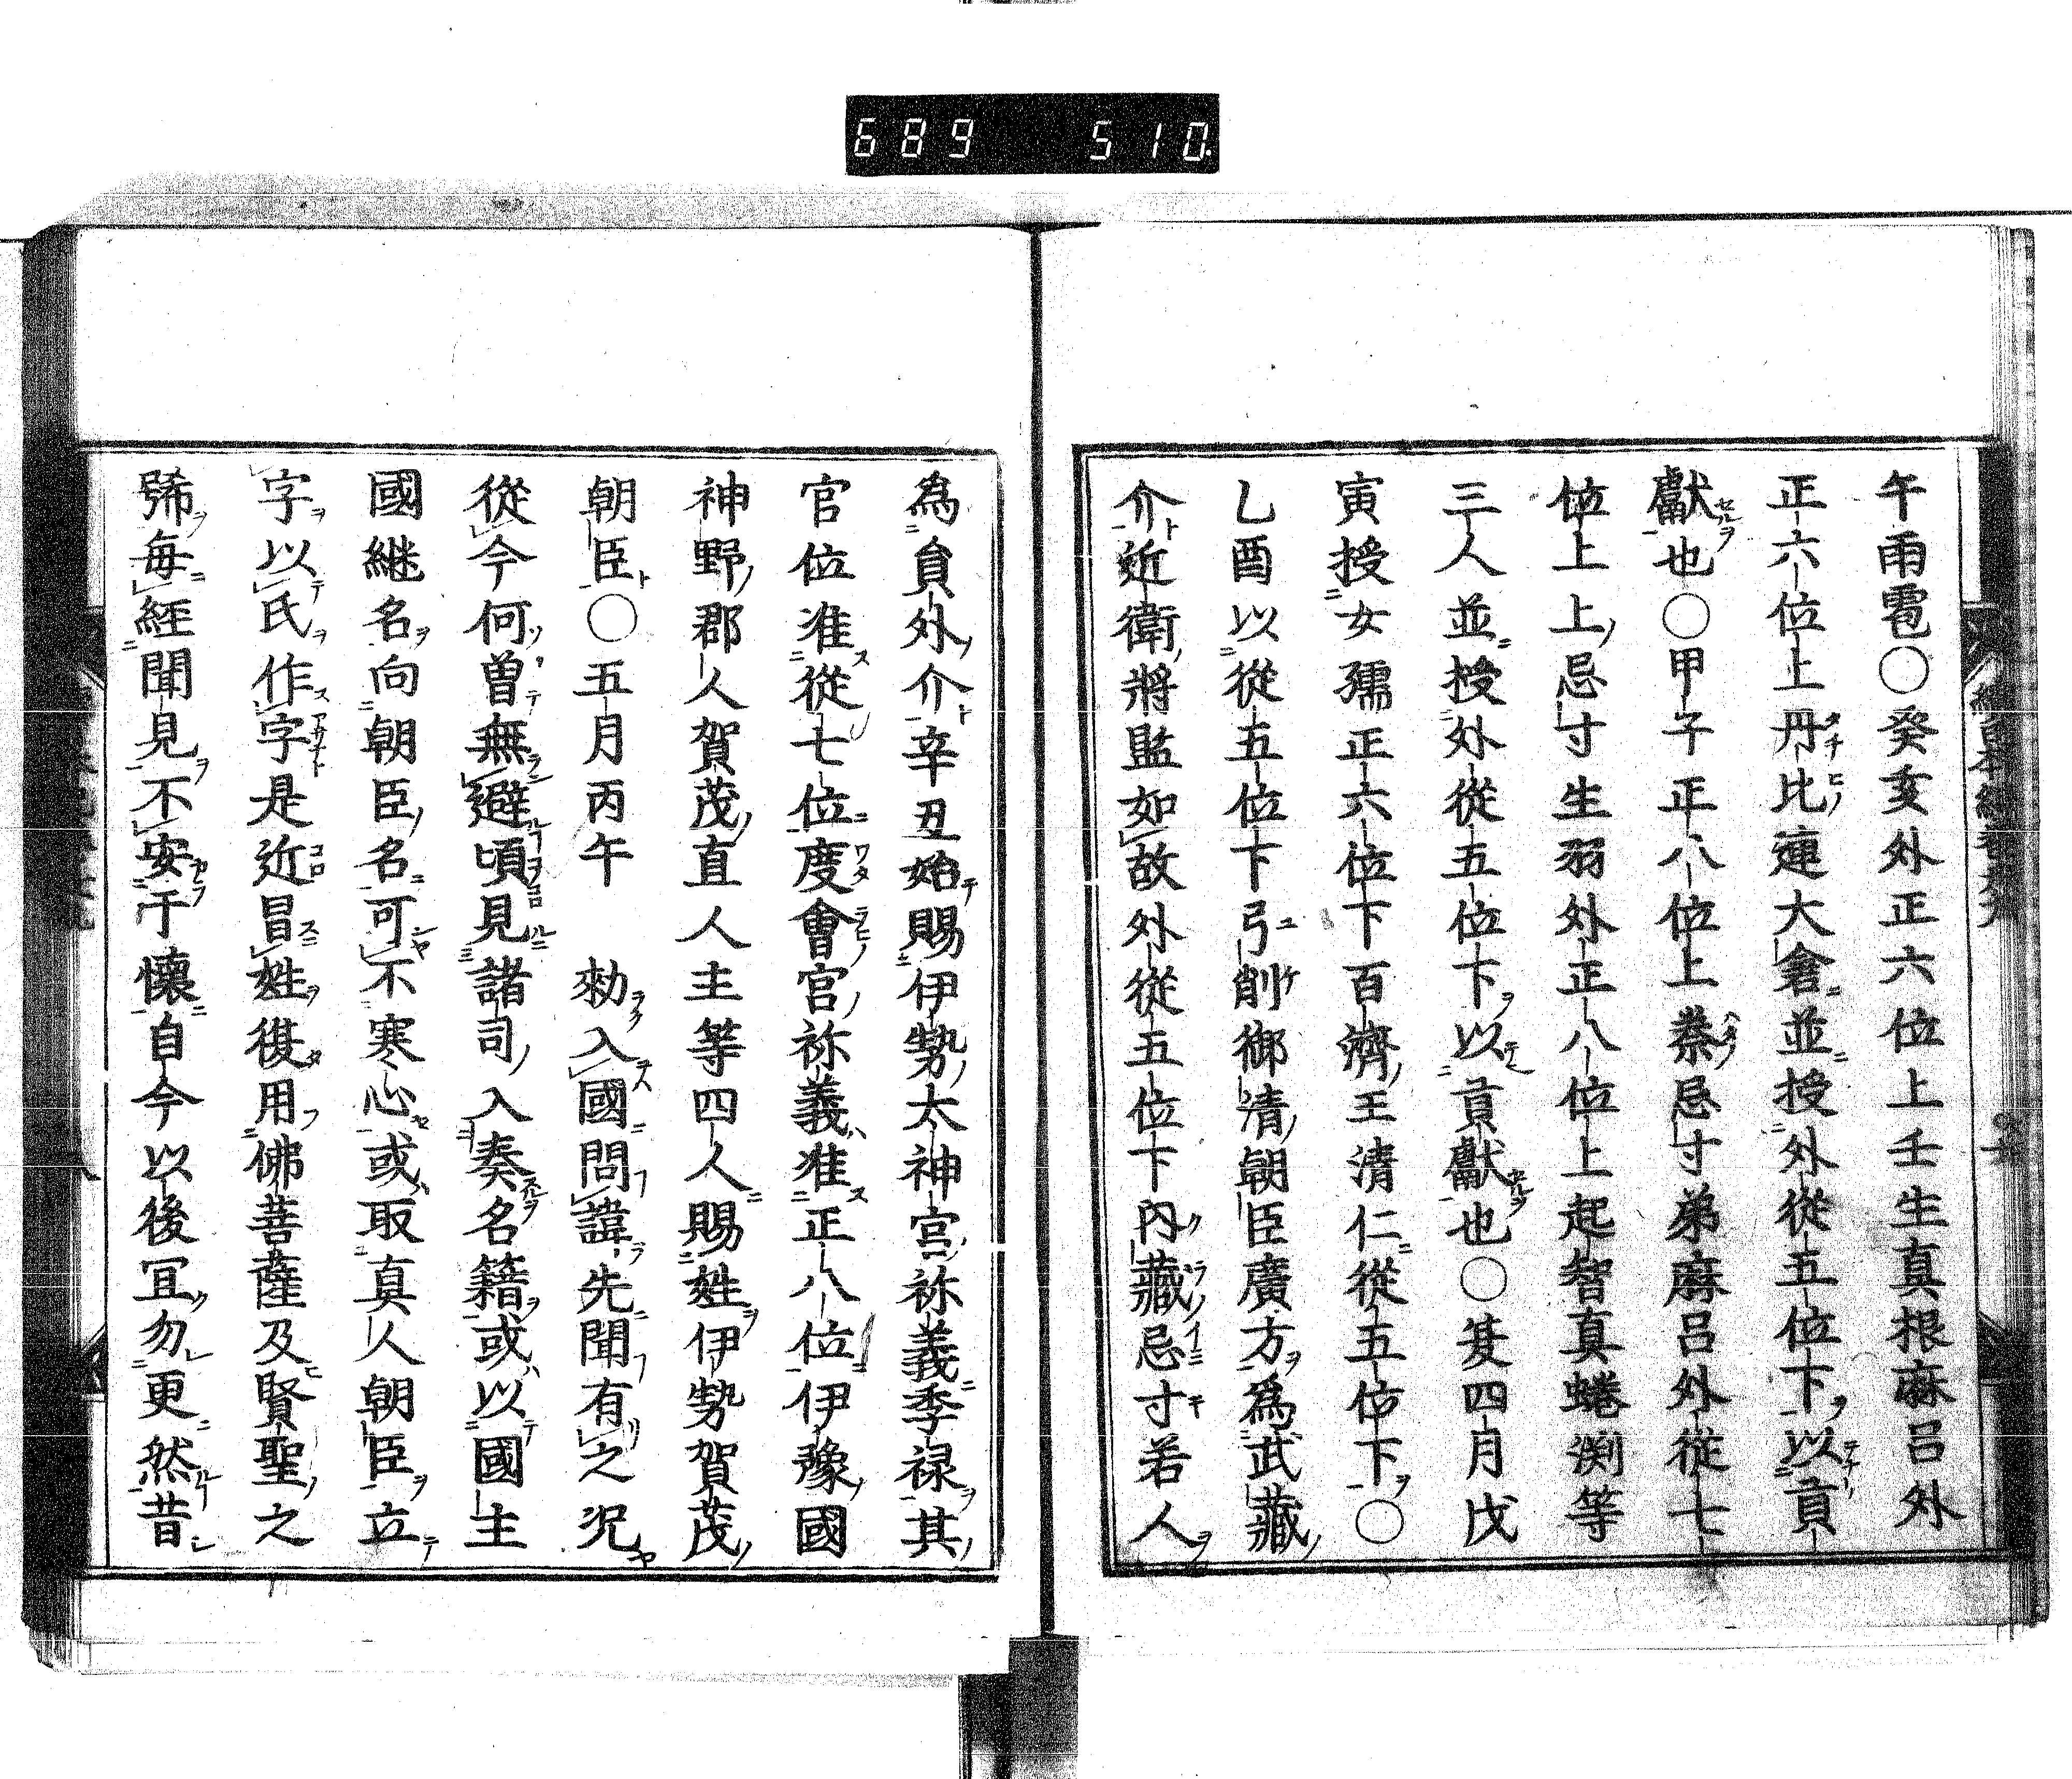 689 510
午雨雹○癸亥外正六位上壬生真根麻呂外
正六位上丹比連大倉並授外從五位下以貢
獻也○甲子正八位上秦忌寸弟麻呂外從七
位上上忌寸生羽外正八位上起智真蜷渕等
三人並授外從五位下以貢獻也○夏四月戊
寅授女孺正六位下百濟王清仁從五位下○
乙酉以從五位下弓削御清朝臣廣方為武藏
介近衛將監如故外從五位下內藏忌寸若人
為員外介辛丑始賜伊勢太神宮祢義季禄其
官位准從七位度會宮祢義准正八位伊豫國
神野郡人賀茂直人主等四人賜姓伊勢賀茂
朝臣○五月丙午 勑入國問諱先聞有之況
從今何曽無避頃見諸司入奏名籍或以國主
國継名向朝臣名可不寒心或取真人朝臣立
字以氏作字是近冒姓復用佛菩薩及賢聖之
号每經聞見不安于懷自今以後冝勿更然昔